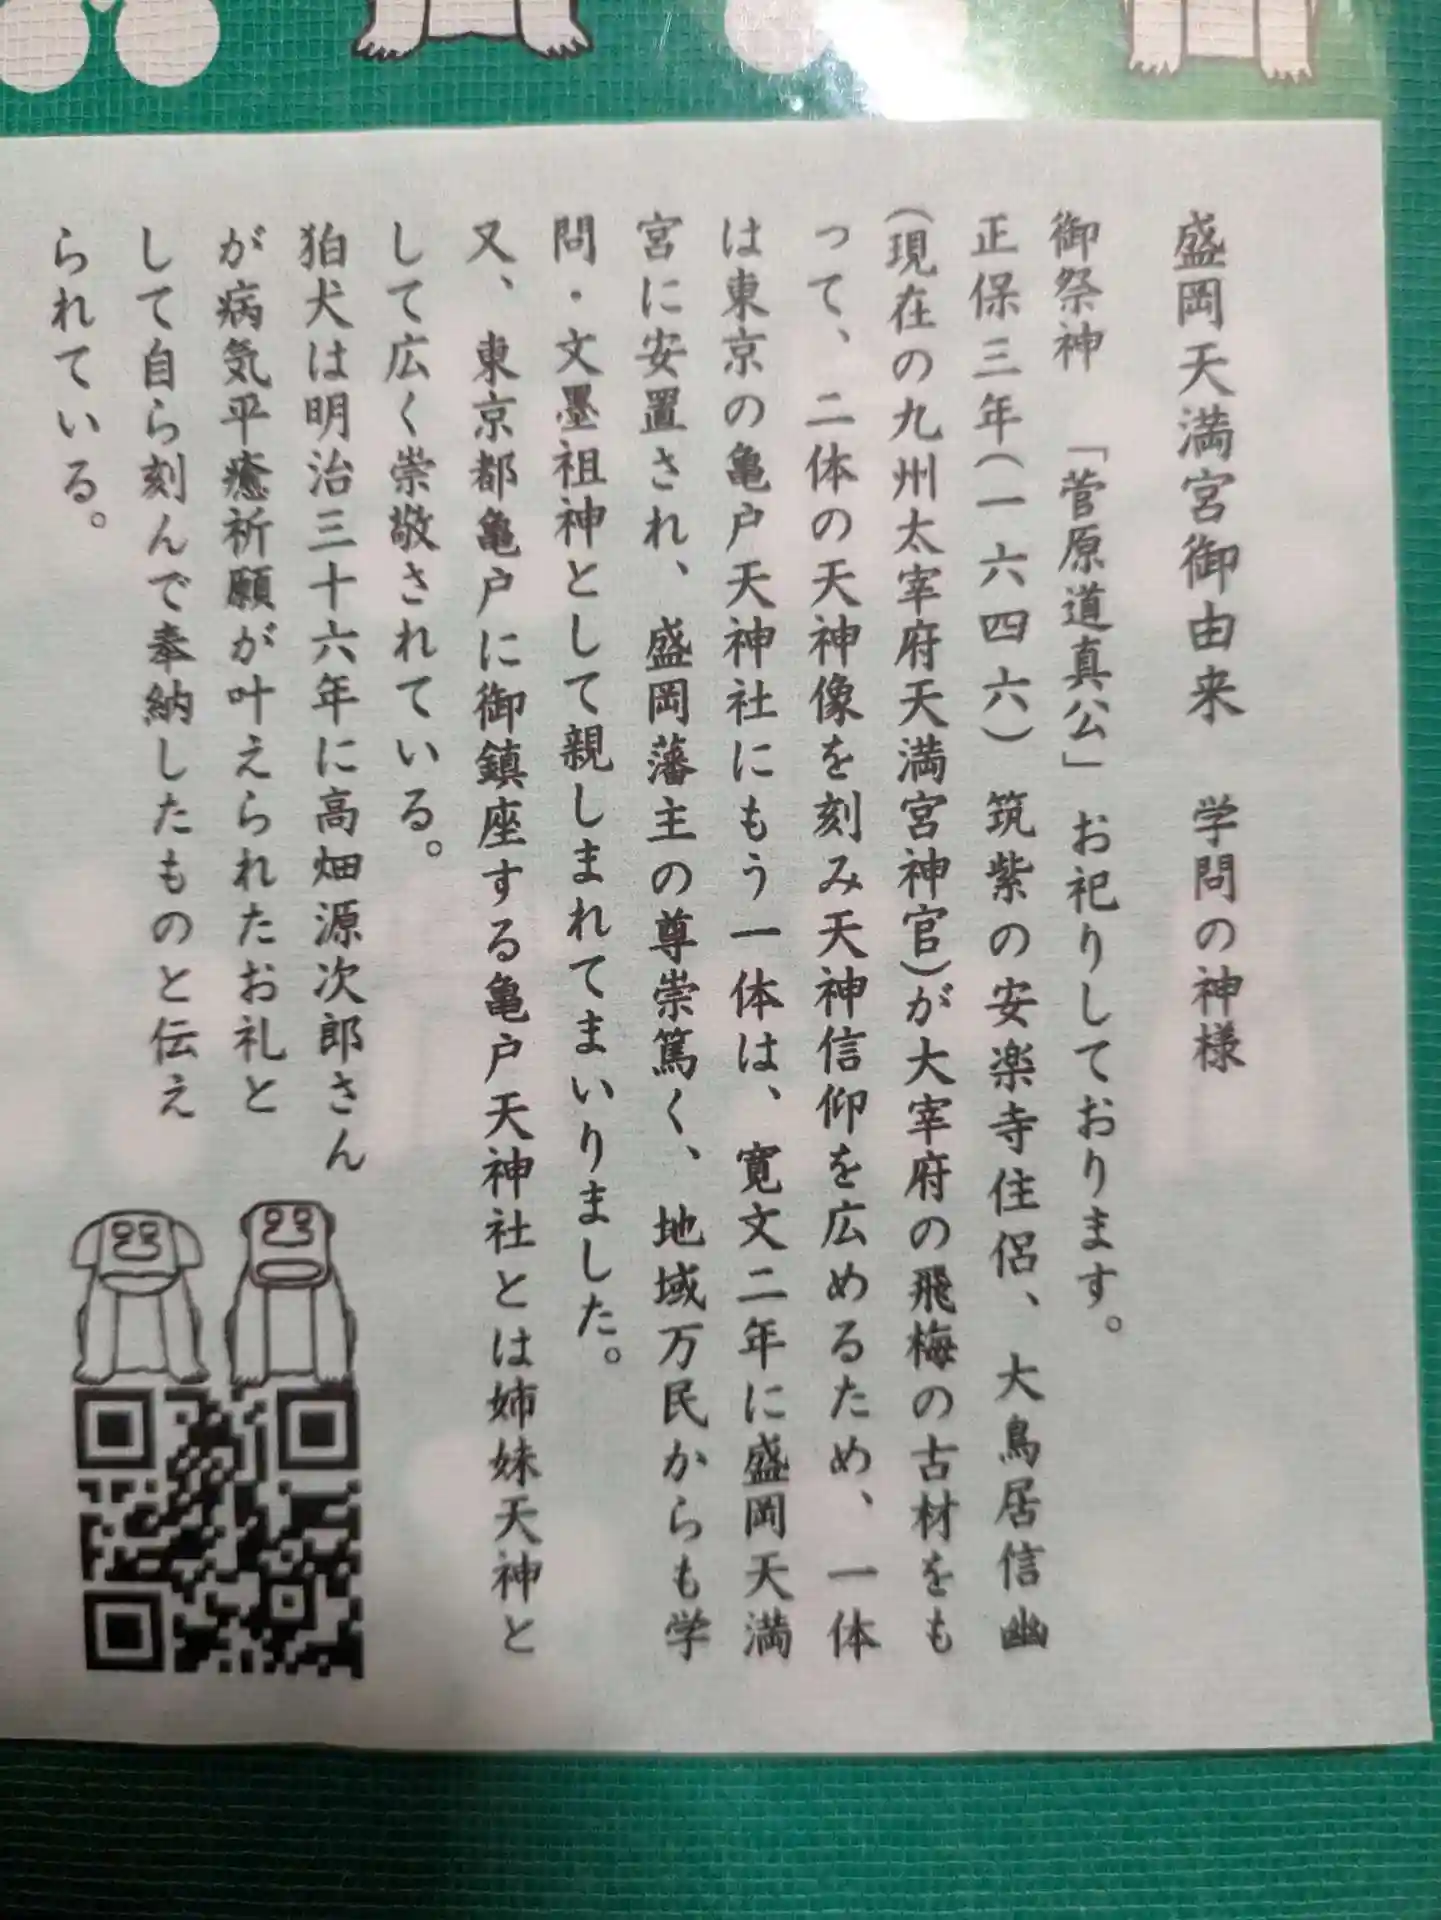 盛岡天満宮御由来　学問の神様
御祭神　「菅原道真公」　お祀りしております。
正保三年(一六四六)　筑紫の安楽寺住侶、大鳥居信幽
(現在の九州太宰府天満宮神官)が大宰府の飛梅の古材をも
って、二体の天神像を刻み天神信仰を広めるため、一体
は東京の亀戸天神社にもう一体は、寛文二年に盛岡天満
宮に安置され、盛岡藩主の尊崇篤く、地域万民からも学
問・文墨祖神として親しまれてまいりました。
又、東京都亀戸に御鎮座する亀戸天神社とは姉妹天神と
して広く崇敬されている。
狛犬は明治三十六年に高畑源次郎さん
が病気平癒祈願が叶えられたお礼と
して自ら刻んで奉納したものと伝え
られている。